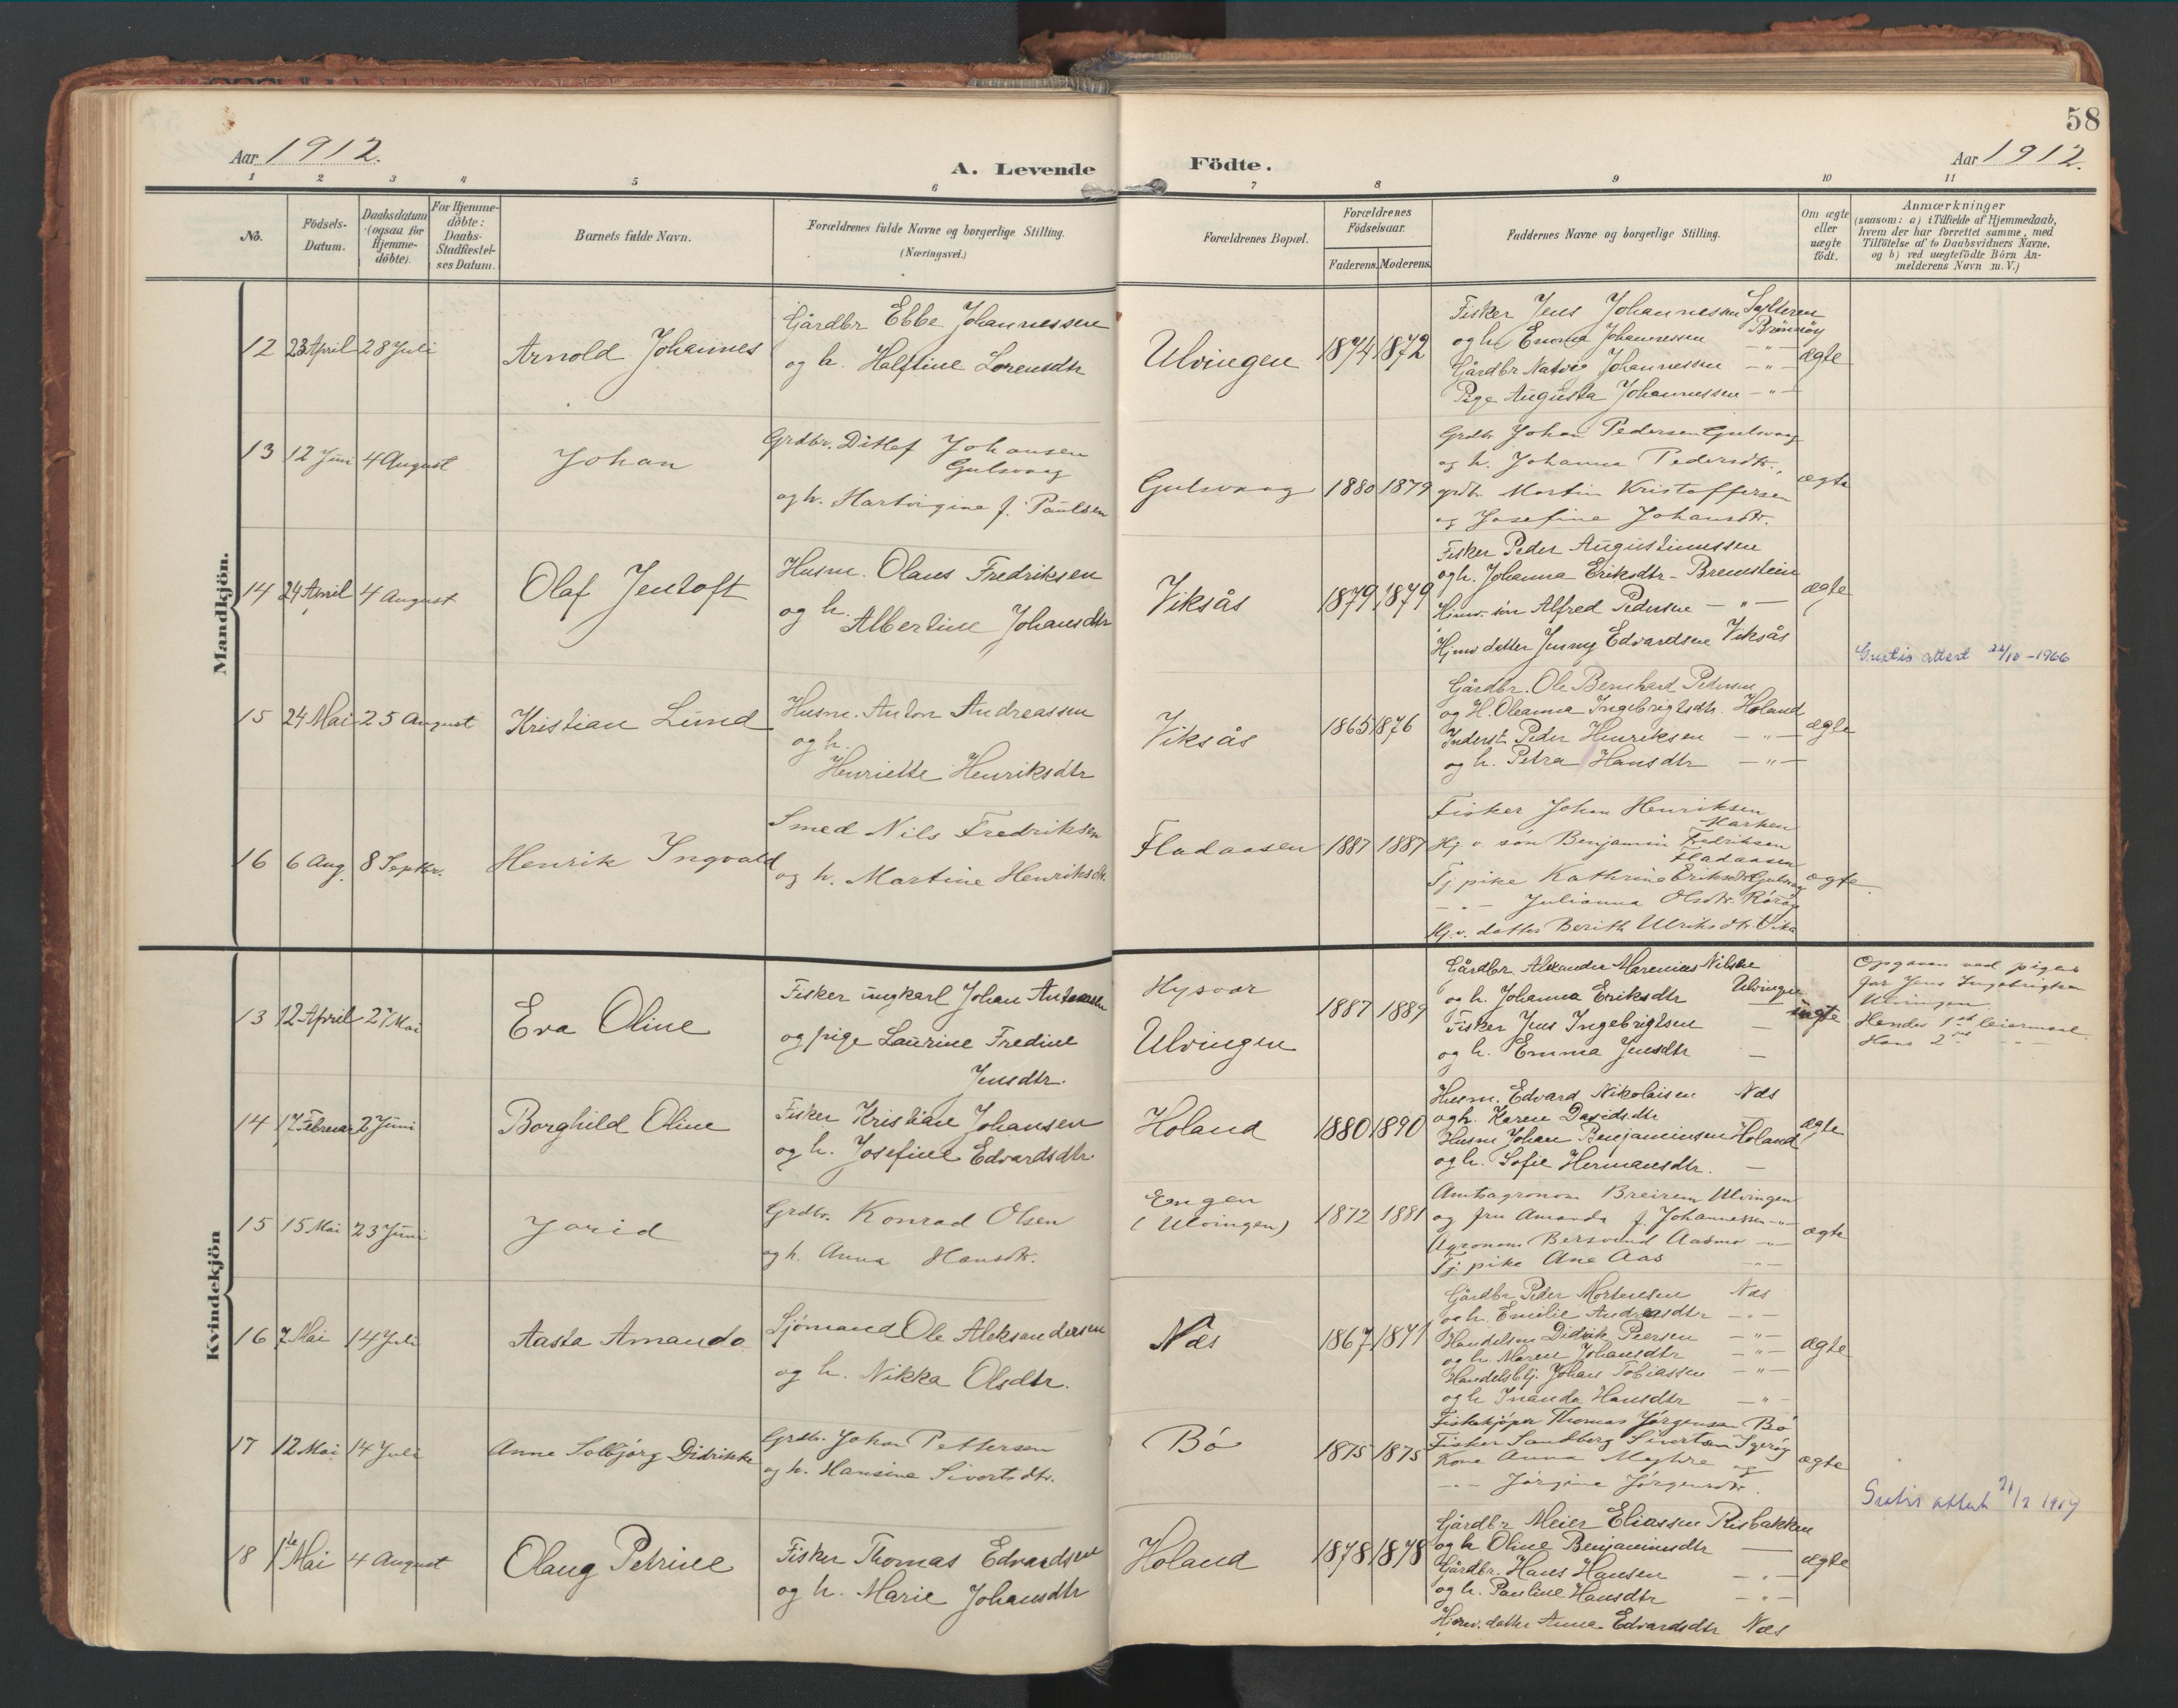 58
Aar 1912.
A. Levende Födte.
Aar 1912.
1 2 3 4 5 6 7 8 9 10 11
No.
Födsels-
Datum.
Daabsdatum
(ogsaa for
Hjemme-
döbte).
For Hjemme-
döbte:
Daabs-
Stadfæstel-
ses Datum.
Barnets fulde Navn.
Forældrenes fulde Navne og borgerlige Stilling.
(Næringsvei.)
Forældrenes Bopæl.
Forældrenes
Födselsaar.
Faderens. Moderens.
Faddernes Navne og borgerlige Stilling.
Om ægte
eller
uægte
födt.
Anmærkninger
(saasom: a) i Tilfælde af Hjemmedaab,
hvem der har forrettet samme, med
Tilföielse af to Daabsvidners Navne,
og b) ved uægtefödte Börn An-
melderens Navn m. V.)
Mandkjön.
12 23 April 28 Juli Arnold Johannes
Gårdbr Ebbe Johannessen
og h. Halftine Lorensdtr
Ulvingen 1874 1872
Fisker Jens Johannessen
Brönnöy
og h. Emma Johannessen - " -
Gårdbr Natvig Johannessen - " -
Pige Augusta Johannessen - " -
ægte
13 12 Juni 4 August Johan
Grdbr. Ditlef Johansen
Gulsvaag
og h. Hartvigine f. Paulsen
Gulsvaag 1880 1879
Grdbr Johan Pedersen Gulsvaag
og h. Johanna Pedersdtr.
grdbr. Martin Kristoffersen
og Josefine Johansdtr.
ægte
14 24 April 4 August Olaf Jentoft
Husm. Olaus Fredriksen
og h.
Albertine Johansdtr
Viksås 1879 1879
Fisker Peder Augustinussen
og h. Johanna Eriksdtr - Bremstein
Hjmv. sön Alfred Pedersen - " -
Hjmv datter Jenny Edvardsen Viksås
ægte
Gratis attest 24/10 - 1966
15 24 Mai 25 August Kristian Lund
Husm. Anton Andreassen
og h.
Henriette Henriksdtr
Viksås 1865 1876
Gårdbr. Ole Bernhard Pedersen
og H. Oleanna Ingebrigtsdtr. Holand
Inderst Peder Henriksen - " -
og h. Petra Hansdtr - " -
ægte
16 6 Aug. 8 Septbr. Henrik Ingvald
Smed Nils Fredriksen
og h. Martine Henriksdtr.
Fladaasen 1887 1887
Fisker Johan Henriksen
Marken
Hj. v. sön Benjamin Fredriksen
Fladaasen
Tj. pike Kathrine Eriksdtr Gulsvaag
- " - Julianna Olsdtr. Röröy
Hj. v. datter Berith Ulriksdtr. Vika
ægte
Kvindekjön
13 12 April 27 Mai Eva Oline
Fisker ungkarl Johan Antonsen
og pige Laurine Fredine
Jensdtr.
Hysvær
Ulvingen
1887 1889
Gårdbr. Alexander Marenius Nilsen
og h. Johanna Eriksdtr Ulvingen
Fisker Jens Ingebrigtsen -
og h. Emma Jensdtr -
uægte
Opgaven ved pigens
far Jens Ingebrigtsen
Ulvingen
Hendes 1ste leiermaal
Hans 2det - " -
14 17 Februar 2 Juni Borghild Oline
Fisker Kristian Johansen
og h. Josefine Edvardsdtr.
Holand 1880 1890
Husm. Edvard Nikolaisen Næs
og h. Karen Davidsdtr
Husm Johan Benjaminsen Holand
og h. Sofie Hermansdtr. -
ægte
15 15 Mai 23 Juni Jorid
Grdbr. Konrad Olsen
og h. Anna Hansdtr.
Engen
(Ulvingen)
1872 1881
Amtsagronom Breirem Ulvingen
og fru Amanda f. Johannessen - " -
Agronom Bersvend Aasmo - " -
Tj. pike Ane Aas - " -
ægte
16 7 Mai 14 Juli Aasta Amanda
Sjömand Ole Aleksandersen
og h. Nikka Olsdtr.
Næs 1867 1871
Gårdbr Peder Mortensen Næs
og h. Emilie Andreasdtr - " -
Handelsm Didrik Peersen - " -
og h. Maren Johansdtr - " -
Handelsbtj. Johan Tobiassen - " -
og h Inanda Hansdtr - " -
ægte
17 12 Mai 14 Juli Anne Solbjörg Didrikke
Grdbr. Johan Pettersen
og h. Hansine Sivertsdtr.
Bö 1875 1875
Fiskekjöper Thomas Jörgensen Bö
Fisker Sandberg Sivertsen
Kone Anna
- " - Jörgine Jörgensdtr.
ægte
Gratis attest
18 1ste Mai 4 August Olaug Petrine
Fisker Thomas Edvardsen
og h. Marie Johansdtr
Holand 1878 1878
Gårdbr Meier Eliassen Risbakken
og h Oline Benjaminsdtr -
Gårdbr. Hans Hansen - " -
og h. Pauline Hansdtr - " -
Hjemv. datter Anna Edvardsdtr Næs
ægte